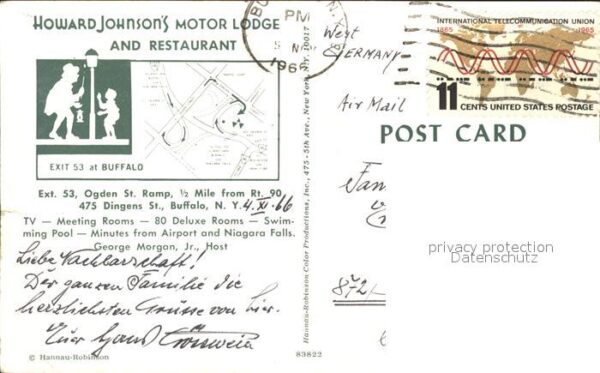 HOWARD JOHNSON'S MOTOR LODGE
AND RESTAURANT
EXIT 53 at BUFFALO
Ext. 53, Ogden St. Ramp, ½ Mile from Rt. 90,
475 Dingens St., Buffalo, N. Y. 4. XI. 66
TV — Meeting Rooms — 80 Deluxe Rooms — Swim-
ming Pool — Minutes from Airport and Niagara Falls.
George Morgan, Jr., Host
Liebe Nachbarschaft!
Der ganzen Familie die
herzlichsten Grüsse von hier.
Euer Hans
© Hannau-Robinson
Hannau-Robinson Color Productions, Inc., 475 - 5th Ave., New York, NY, 10017
83822
PM
West
GERMANY
Air Mail
INTERNATIONAL TELECOMMUNICATION UNION
1865 1965
11 CENTS UNITED STATES POSTAGE
POST CARD
Fam
privacy protection
Datenschutz
872